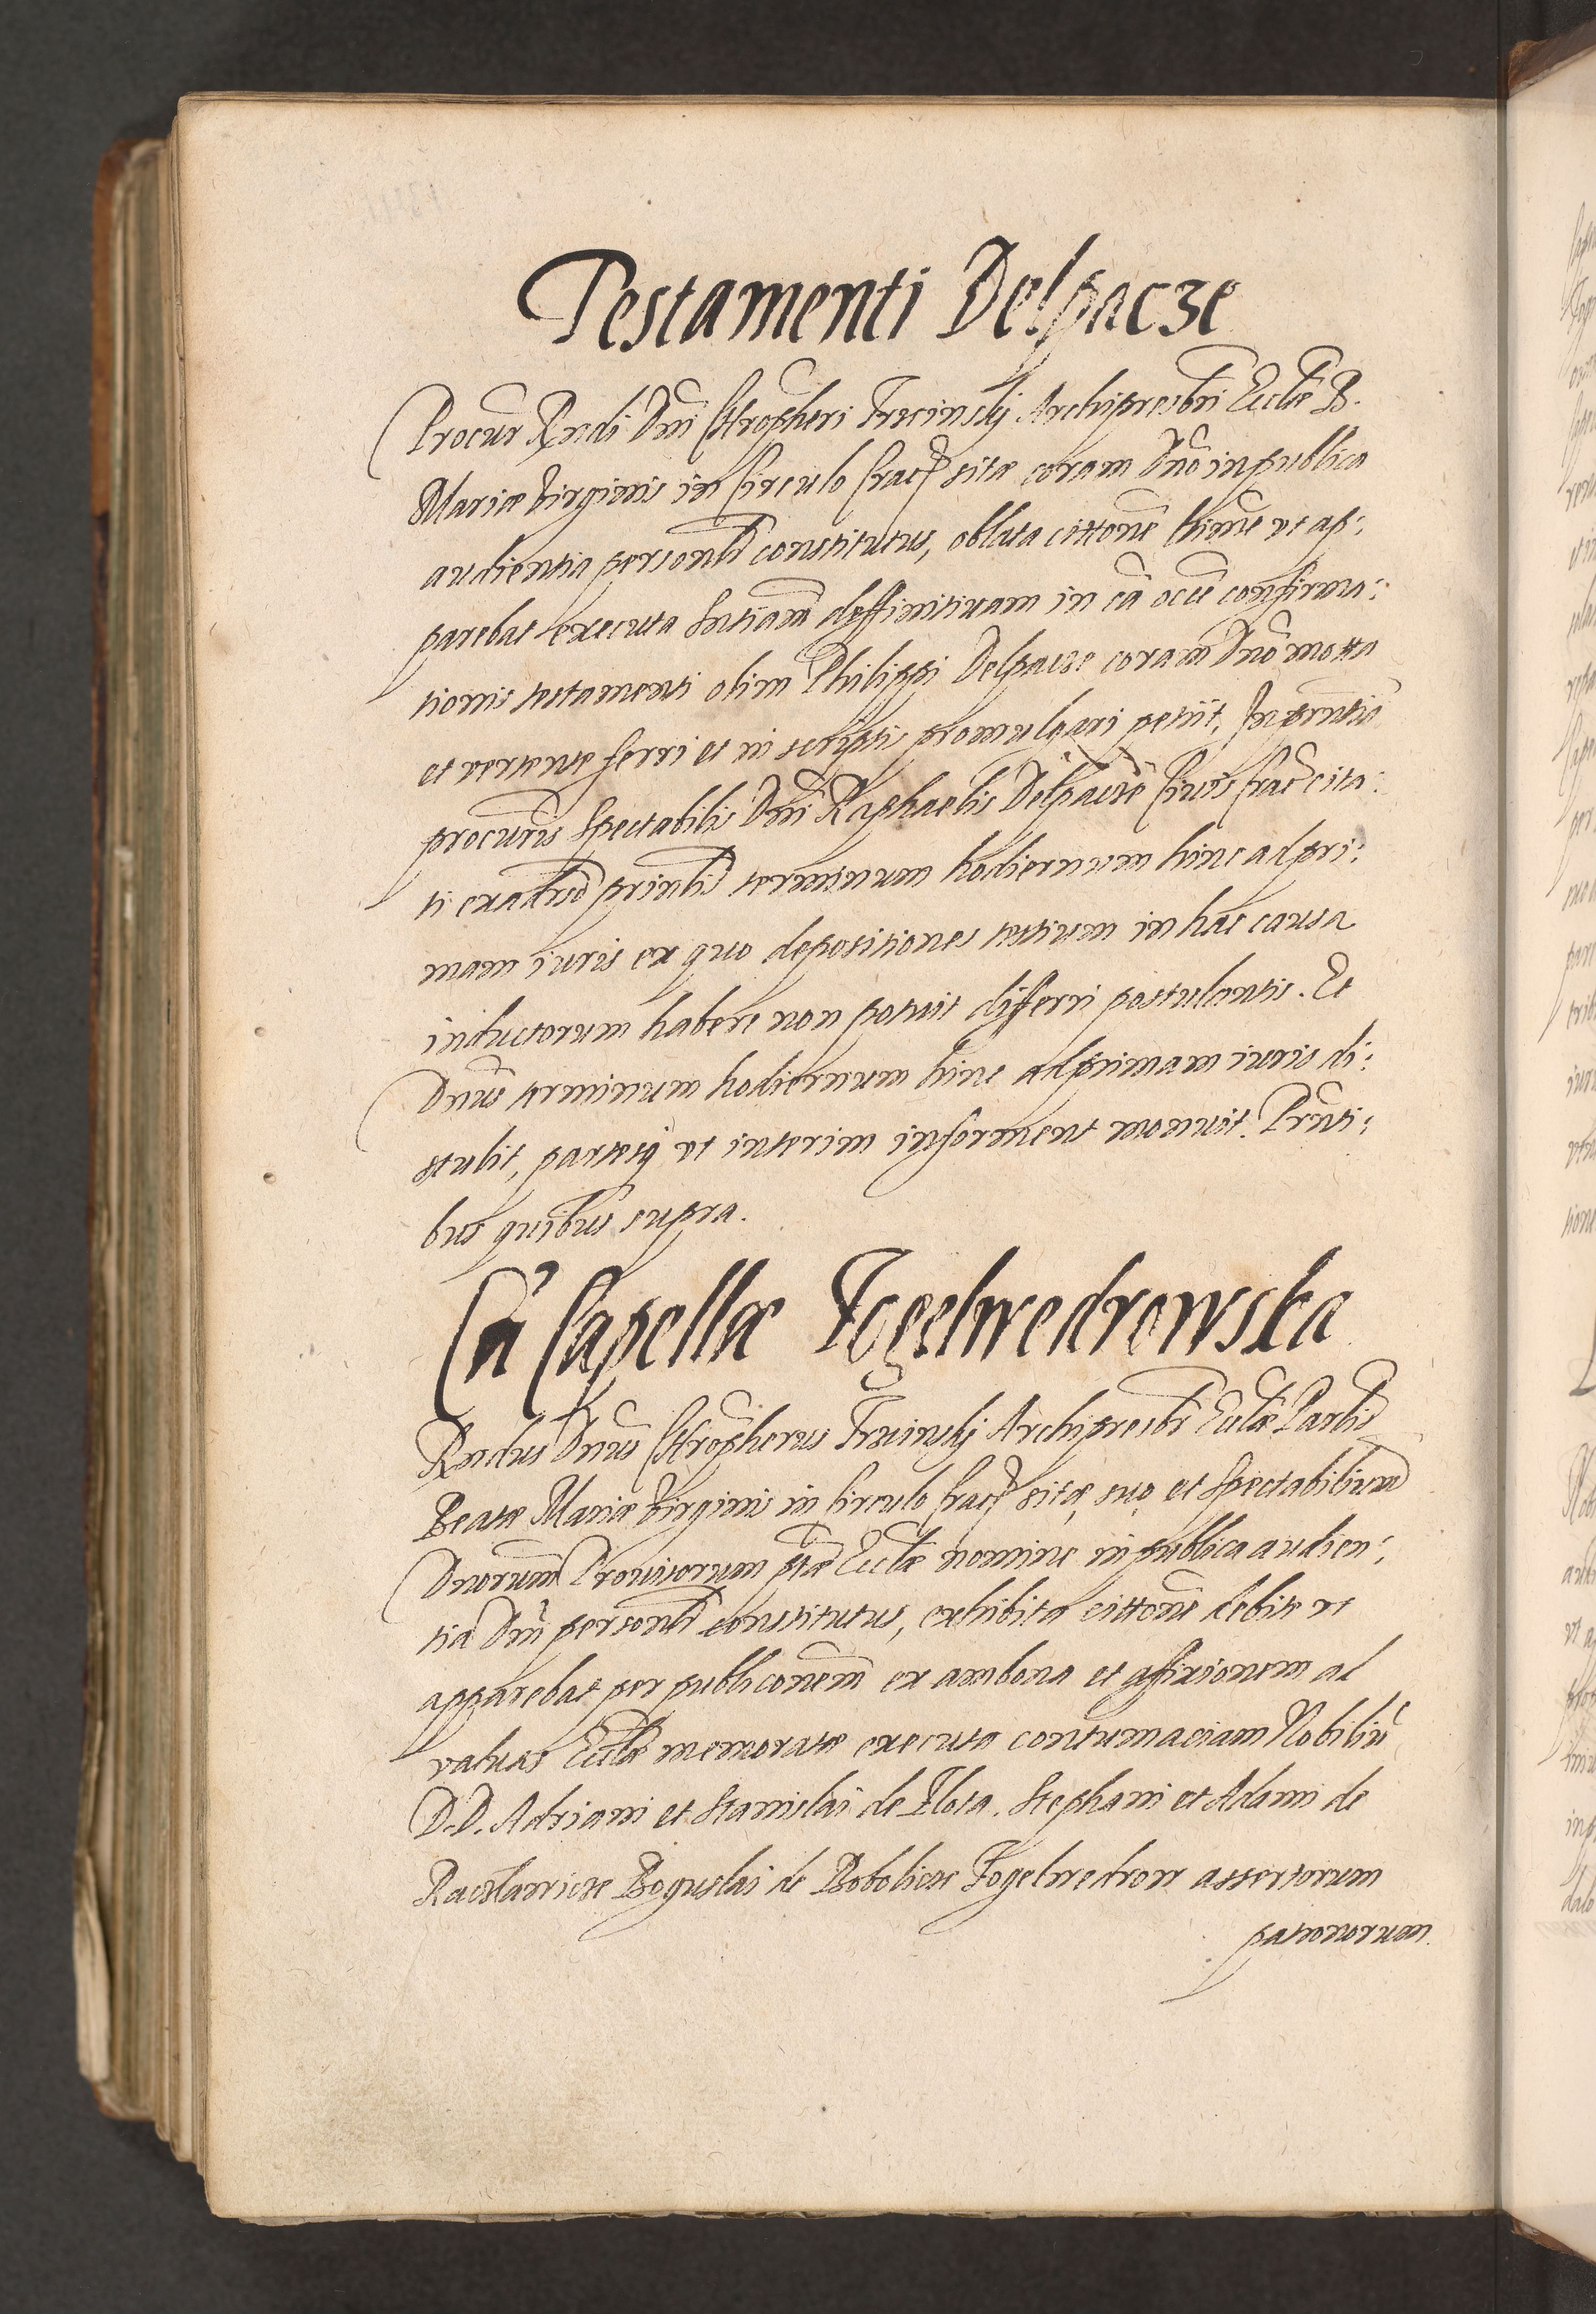 Testamenti Delpacze
Procur Rndi Dni Chropheri Trzcinskj Archipresbri Ecclæ B.
Mariæ Virginis in Circulo Crac sitæ coram Dno in publica
audientia personlr constitutus, oblata cittone hinc vt ap:
parebat executa sntiam deffinitiuam in ca occe confirma:
tionis testamenti olim Philippi Delpacze coram Dno mota
et vertente ferri et in scriptis promulgari petiit, In pntia
procuris Spectabilis Dni Raphaelis Delpacze Ciuis Crac cita:
ti ex aduso prinlis terminum hodiernum hinc ad pri:
mam iuris ex quo depositiones testium in hac causa
inductorum habere non potuit differri postulantis. Et
Dnus terminum hodiernum hinc ad primam iuris di:
stulit, partesq vt interim informent monuit. Prnti:
bus quibus supra.
Ca Capellæ Fogelwedrowska
Rndus Dnus Chropherus Trzcinskj Archipresbr Ecclæ Parlis
Beatæ Mariæ Virginis in Circulo Crac sitæ, suo et Spectabilium
Dnorum Prouisorum ptæ Ecclæ nomine in publica audien:
tia Dni personlr constitutus, exhibita cittone debite vt
apparebat per publiconem ex ambona et affixionem ad
valuas Ecclæ memoratæ executa contumaciam Nobiliu
D.D. Adriani et Stanislai de Flota. Stephani et Adami de
Raczlawicze Boguslai de Bobolicze Fogelwedrow assertorum
patronorum.